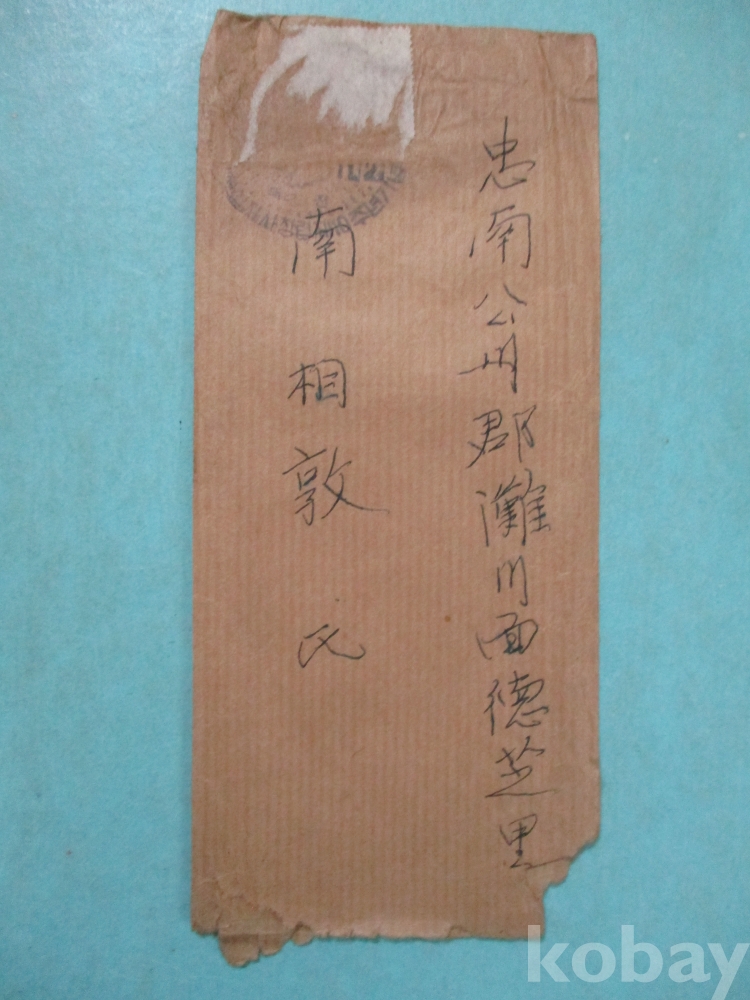 忠南公州郡灘川面德芝里
南相敦氏
kobay